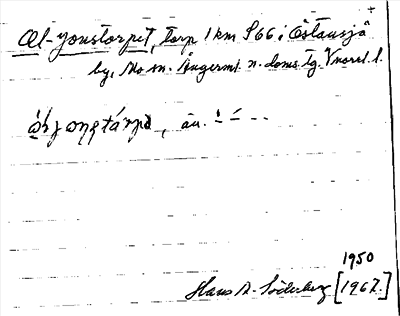 Ol-Jonstorpet, torp 1 km S66 i Östansjö
by, Mo sn. Ångerml. n. doms. tg. Vnorrl. l.
än.
1950
Hans A. Söderberg [1967.]